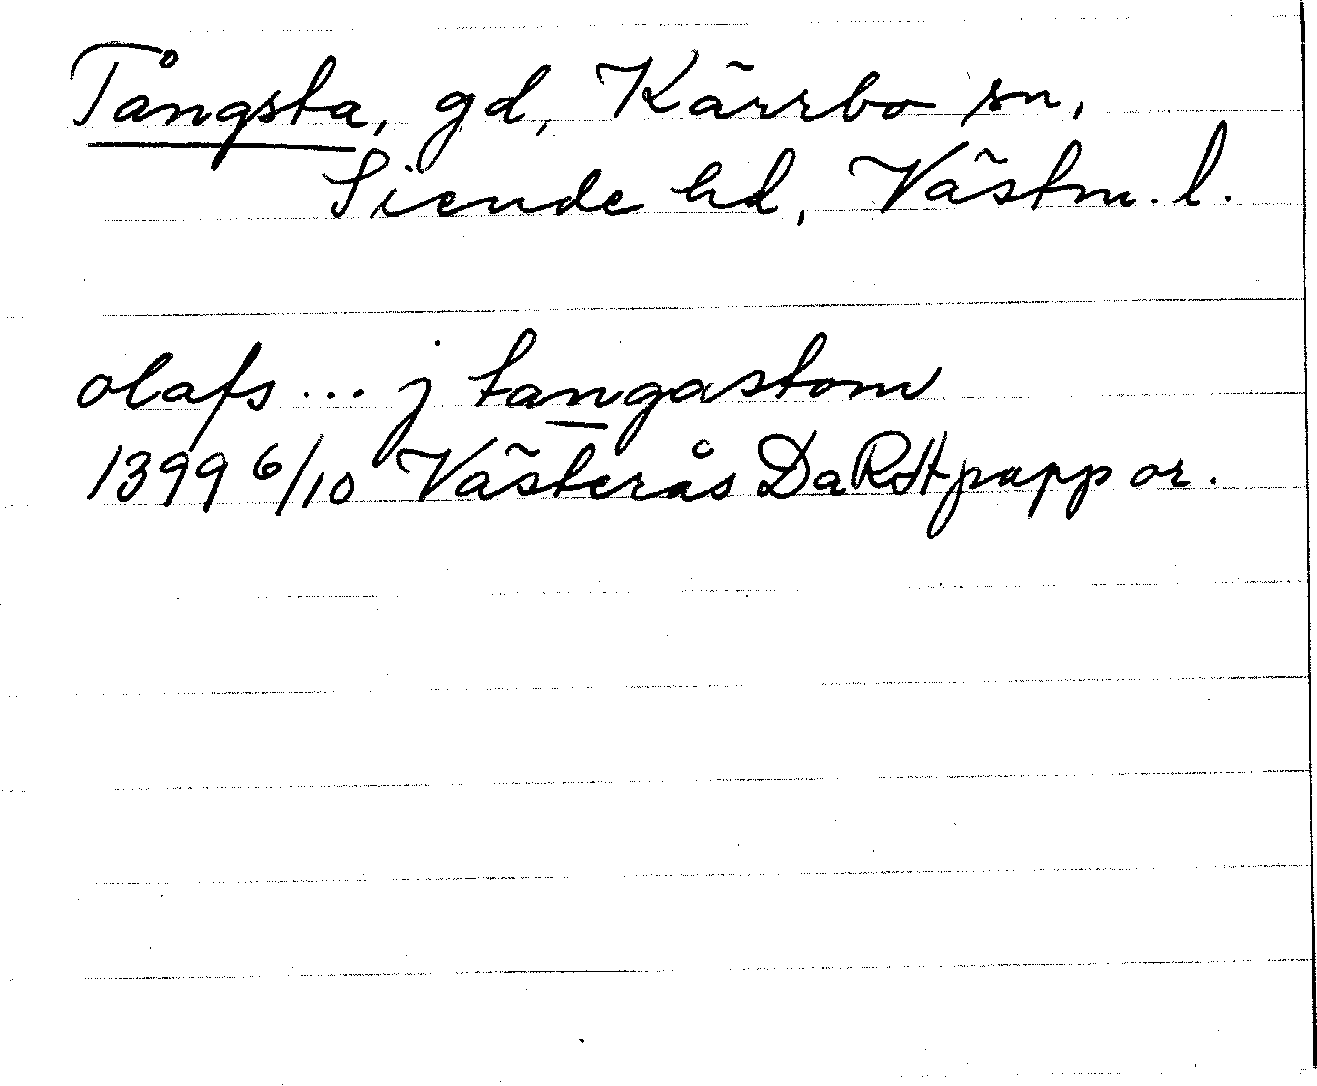 Tångsta, gd, Kärrbo sn,
Siende hd, Västm. l.
olafs ... j tangastom
1399 6/10 Västerås DaRA papp or.